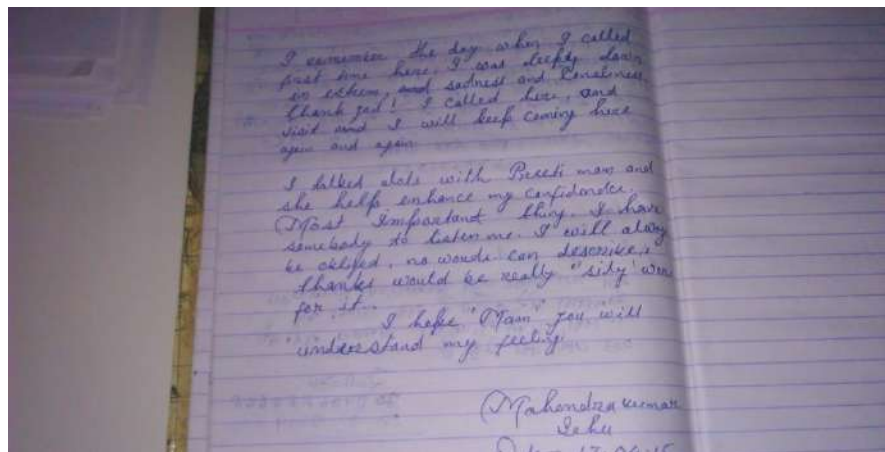 I remember the day when I called
first time here. I was deeply down
in esteem, and sadness and loneliness.
Thank god! I called here, and
visit and I will keep coming here
again and again.
I talked alots with Preeti mam and
she help enhance my confidence.
Most Important thing. I have
somebody to listen me. I will alway
be obliged, no words can describe,
thanks would be really "silly" wor
for it..
I hope 'Mam' you will
understand my feeling
Mahendra kumar